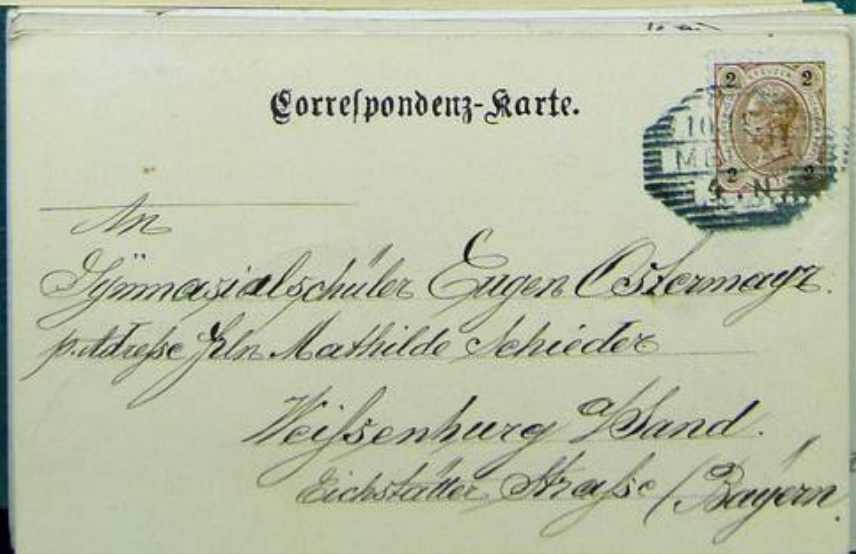 Correspondenz-Karte.
2 KREUZER 2
2 2
An
Gymnasialschüler Eugen Ostermayr.
p. Adreße Frln Mathilde Schieder
Weißenburg a/Sand.
Eichstätter Straße / Bayern.